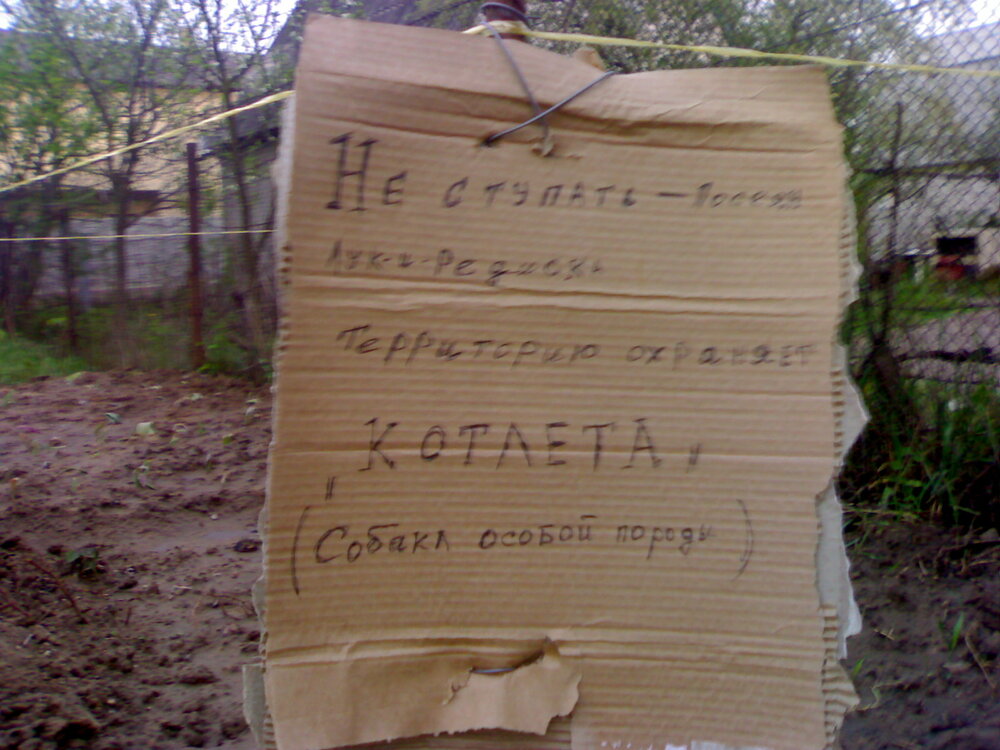 Не ступать — Посеян
Лук-и-Редиска
Территорию охраняет
"КОТЛЕТА"
(Собака особой породы)